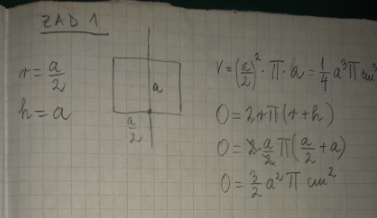 ZAD 1
r = a/2
h = a
a
a/2
V = (a/2)² · π · a = 1/4 a³ π cm³
O = 2rπ(r+h)
O = 2·a/2 π(a/2 + a)
O = 3/2 a² π cm²